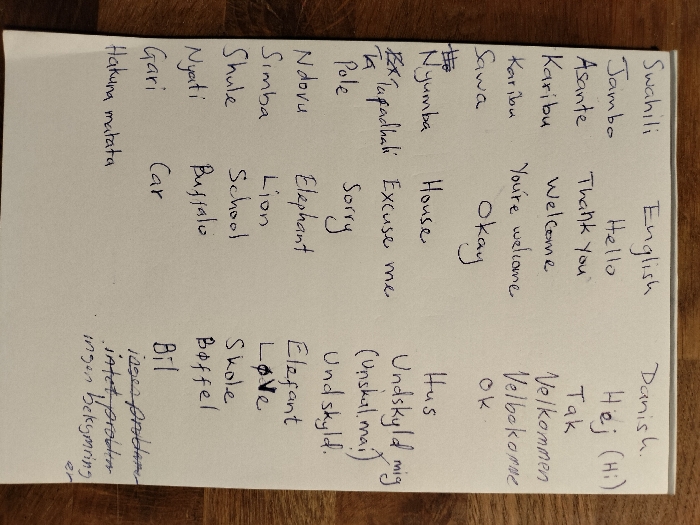 Swahili English Danish.
Jambo Hello Hej (Hi)
Asante Thank you Tak
Karibu Welcome Velkommen
Karibu You're welcome Velbekomme
Sawa Okay ok
Nyumba House Hus
Tafadhali Excuse me Undskyld mig
(Unskyl mai)
Pole Sorry Undskyld.
Ndovu Elephant Elefant
Simba Lion Løve
Shule School Skole
Nyati Buffalo Bøffel
Gari Car Bil
Hakuna matata ingen problemer
intet problem
ingen bekymring
er